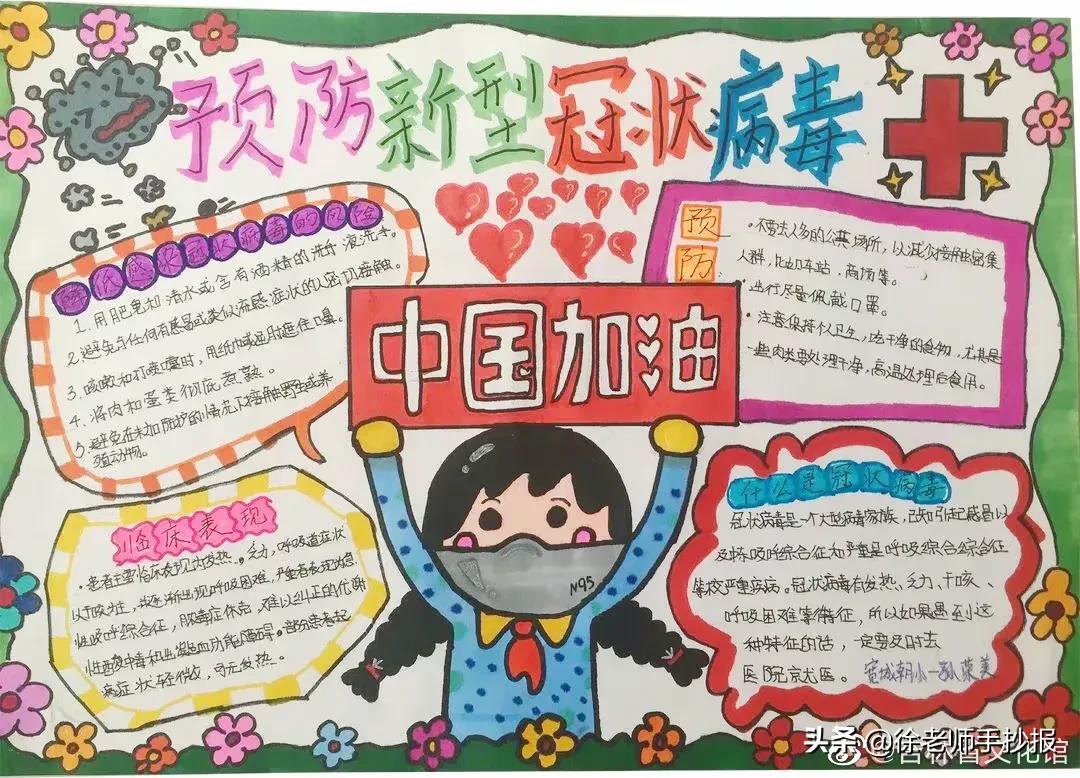 预防新型冠状病毒
降低感染冠状病毒的风险
1. 用肥皂和清水或含有酒精的洗手液洗手。
2. 避免与任何有感冒或类似流感症状的人密切接触。
3. 咳嗽和打喷嚏时，用纸巾或
捂住口鼻。
4. 将肉和蛋类彻底煮熟。
5. 避免在未加防护的情况下接触野生或养
殖动物。
预
防
•不要去人多的公共场所，以减少接触密集
人群，比如车站、商场等。
•出行尽量佩戴口罩。
•注意保持个人卫生，吃干净的食物，尤其是
一些肉类要处理干净，高温处理后食用。
中国加油
N95
临床表现
•患者主要临床表现为发热。乏力，呼吸道症状
以干咳为主，并逐渐出现呼吸困难，严重者表现为急
性呼吸综合征，脓毒症休克，难以纠正的代谢
性酸中毒和出凝血功能障碍。部分患者起
病症状轻微，可无发热。
什么是冠状病毒
冠状病毒是一个大型病毒家族，已知引起感冒以
及
呼吸综合征和严重呼吸综合征
等较严重疾病。冠状病毒有发热、乏力、干咳、
呼吸困难等特征，所以如果遇至小这
种特征的话，一定要及时去
医院就医。
宽城朝小一
荣美
头条@徐老师手抄报
@吉林省文化馆